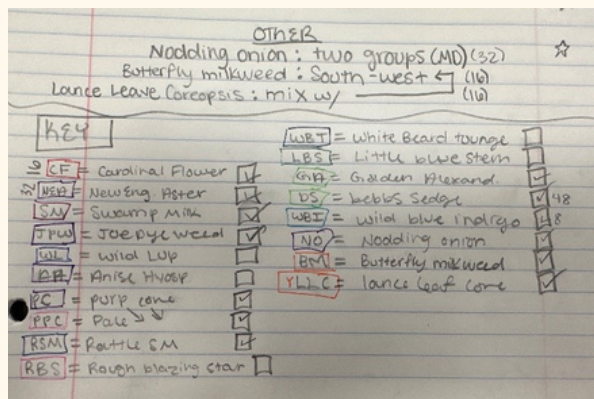 OTHER
Nodding onion : two groups (MD) (32)
Butterfly milkweed : South-west (16)
Lance Leave Coreopsis : mix w/ (16)
KEY
CF = Cardinal Flower
NEA = New Eng Aster
SM = Swamp Milk
JPW = Joe pye weed
WL = Wild Lup
AH = Anise Hyssp
PC = purp cone
PPC = Pale
RSM = Rattle SM
RBS = Rough blazing star
WBT = White Beard tounge
LBS = Little blue stem
GA = Golden Alexand.
bS = bebbs sedge 48
WBI = wild blue indigo 8
NO = Nodding onion
BM = Butterfly milkweed
YLLC = lance leaf cone